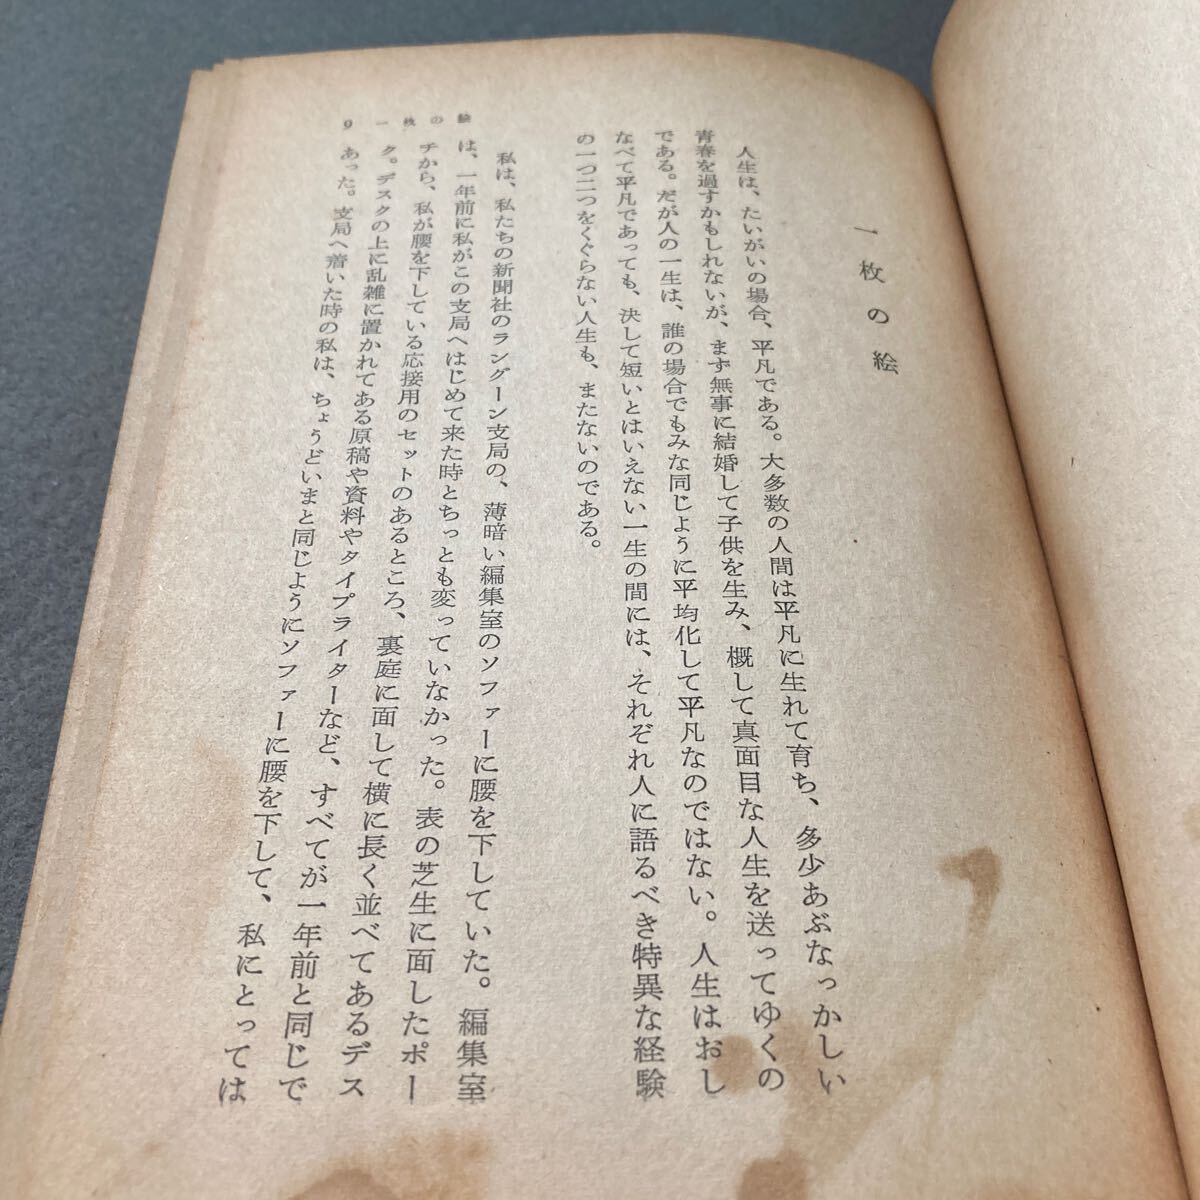 一枚の絵
人生は、たいがいの場合、平凡である。大多数の人間は平凡に生れて育ち、多少あぶなっかしい
青春を過すかもしれないが、まず無事に結婚して子供を生み、概して真面目な人生を送ってゆくの
である。だが人の一生は、誰の場合でもみな同じように平均化して平凡なのではない。人生はおし
なべて平凡であっても、決して短いとはいえない一生の間には、それぞれ人に語るべき特異な経験
の一つ二つをくぐらない人生も、またないのである。
私は、私たちの新聞社のラングーン支局の、薄暗い編集室のソファーに腰を下していた。編集室
は、一年前に私がこの支局へはじめて来た時とちっとも変っていなかった。表の芝生に面したポー
チから、私が腰を下している応接用のセットのあるところ、裏庭に面して横に長く並べてあるデス
ク。デスクの上に乱雑に置かれてある原稿や資料やタイプライターなど、すべてが一年前と同じで
あった。支局へ着いた時の私は、ちょうどいまと同じようにソファーに腰を下して、私にとっては
9 一枚の絵